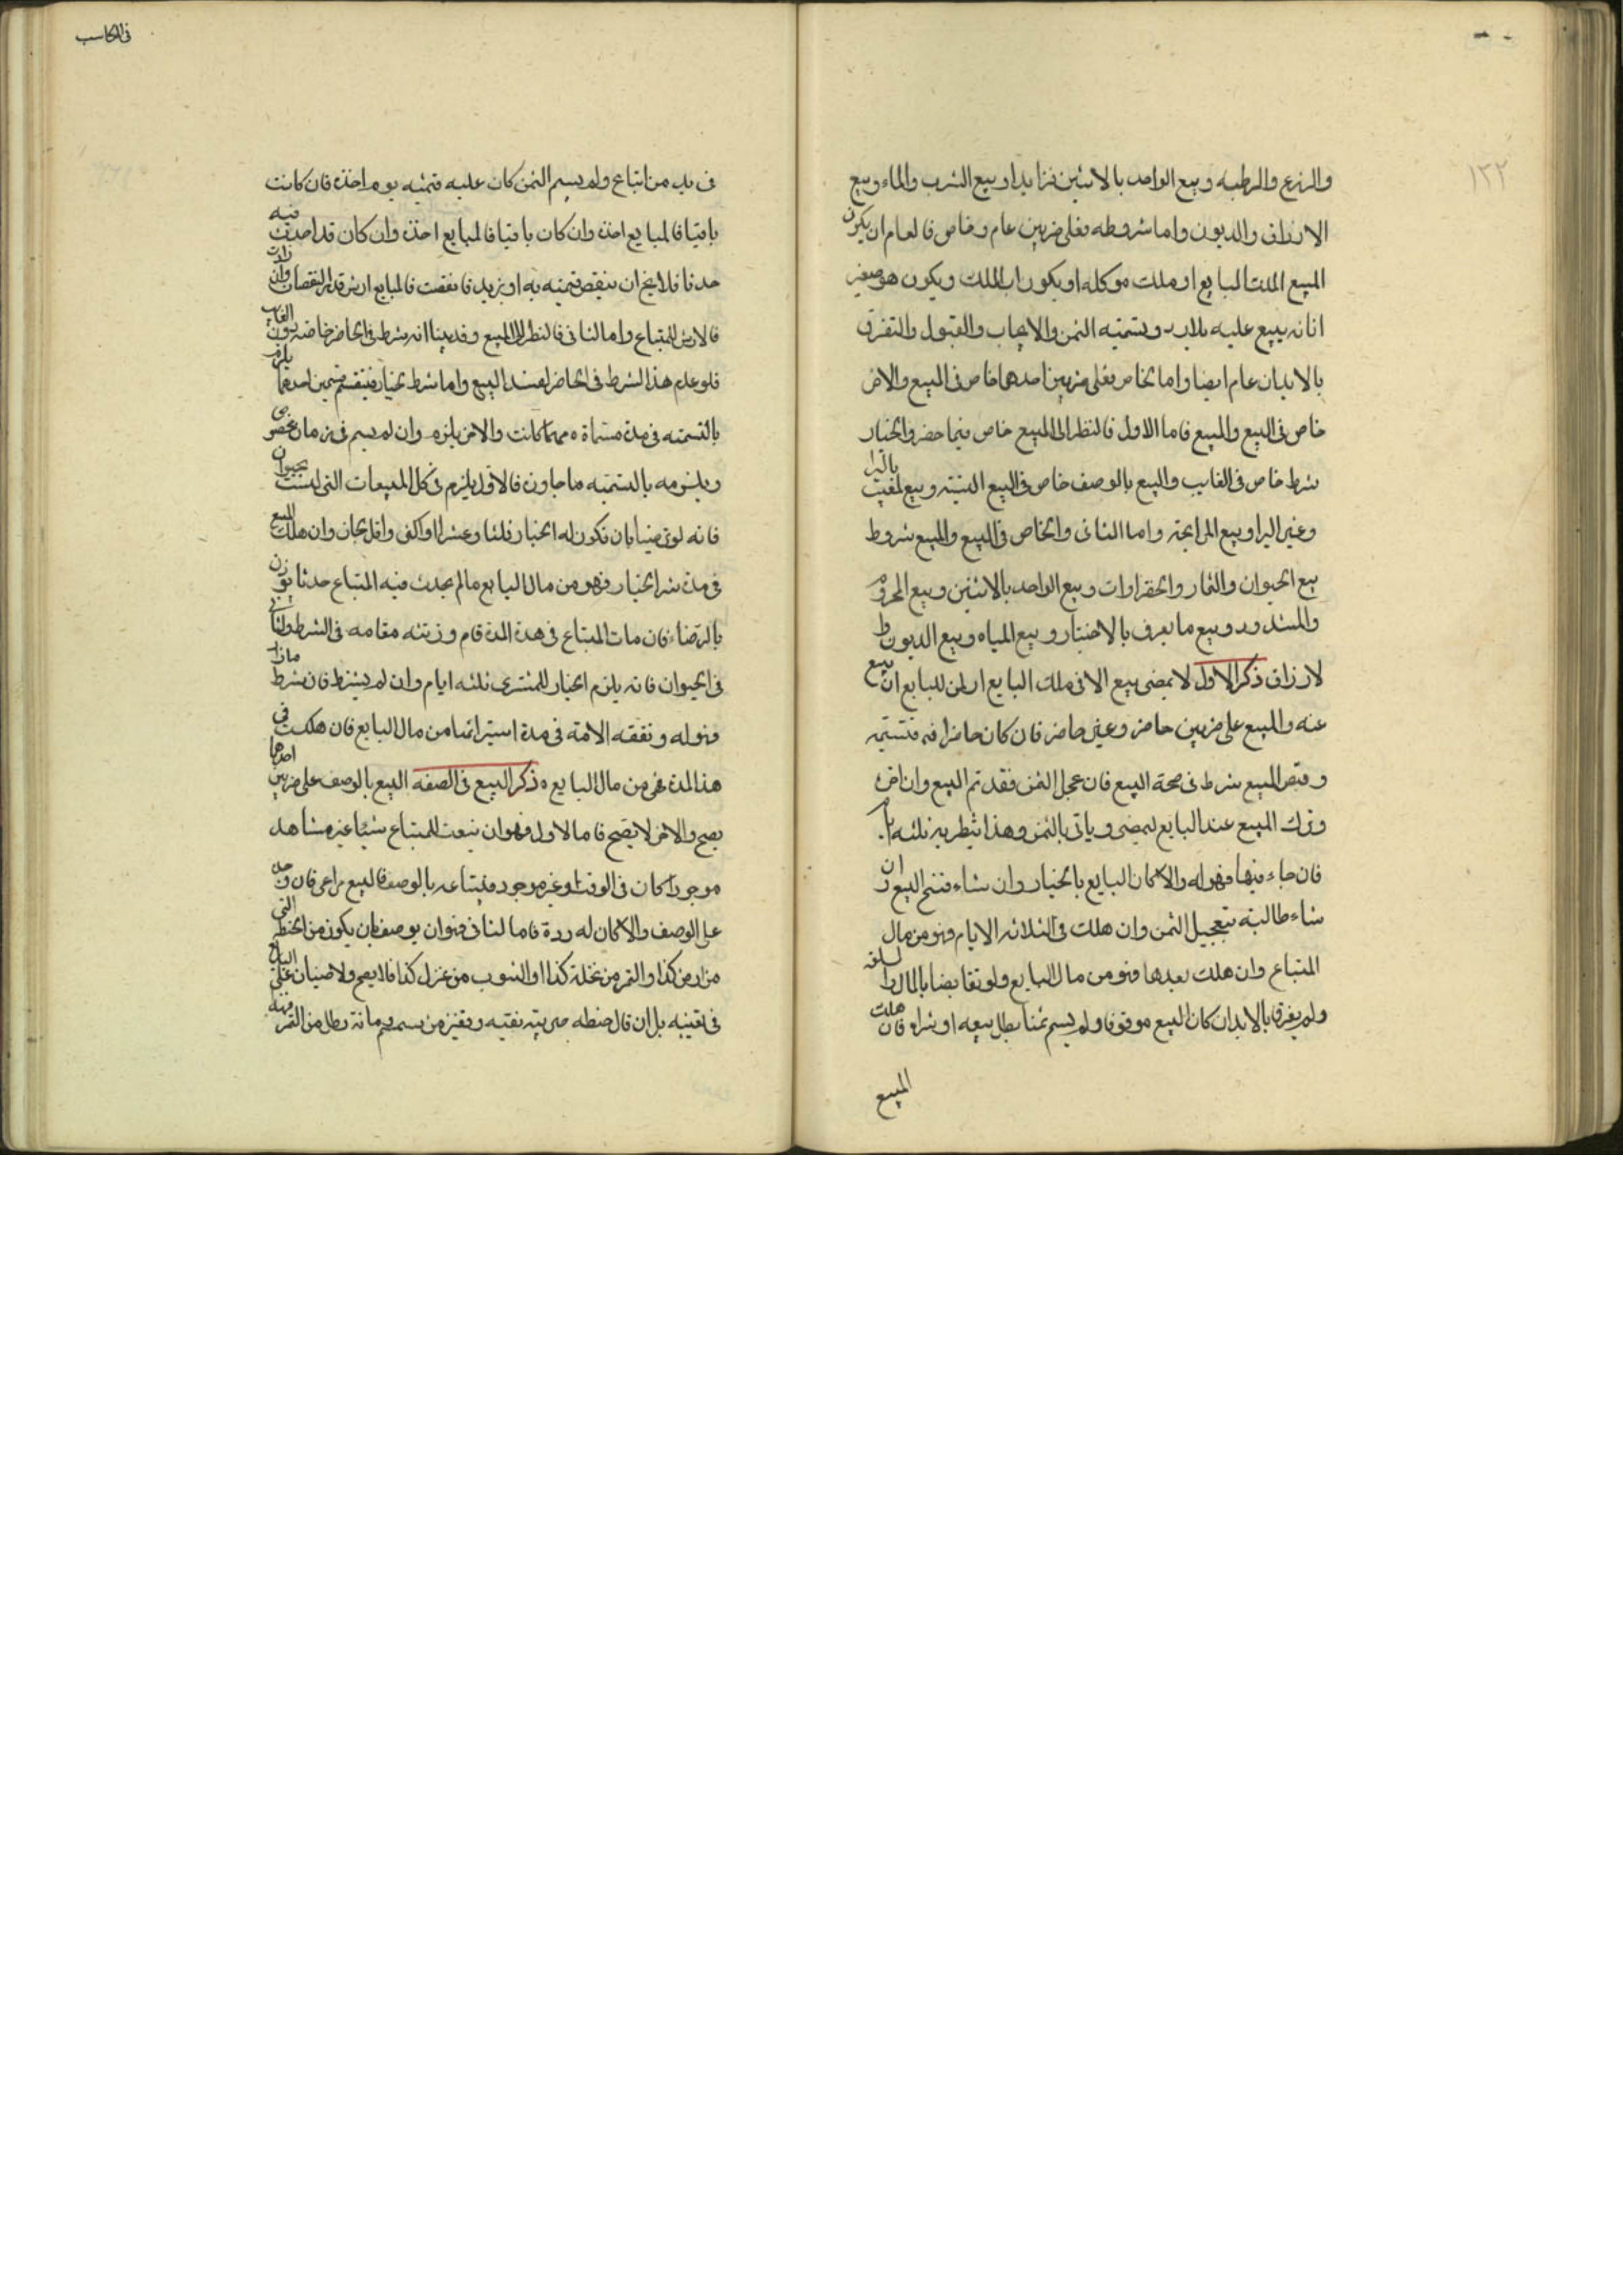 ١٣٢
والزرع والرطبه وبيع الواحد بالاثنين فزايدا وبيع الشرب والماء وبيع
الارزاق والديون واما شروطه فعلى ضربين عام وخاص فالعام ان يكون
المبيع الملك البايع او ملك موكله او يكون اب المالك ويكون هو صغير
انانه يبيع عليه بلاب وتسميته الثمن والايجاب والقبول والتفرق
بالابدان عام ايضا واما الخاص فعلى ضربين احدهما خاص فى المبيع والاخر
خاص فى البيع والمبيع فاما الاول فالنظر الى المبيع خاص فيما حضر والخيار
شرط خاص فى الغايب والبيع بالوصف خاص فى البيع النسيئه وبيع لمغيب بالبرا
وغير البرا وبيع المرابحة واما الثانى والخاص فى البيع والمبيع شروط
بيع الحيوان والثمار والخضراوات وبيع الواحد بالاثنين وبيع المحزوم
والمشدود وبيع ما يعرف بالاختبار وبيع المياه وبيع الديون وا
لارزاق ذكر الاول لا يمضى بيع الا فى ملك البايع او لمن للبايع ان يبيع
عنه والمبيع على ضربين حاضر وغير حاضر فان كان حاضرا فتسميته
وقبض المبيع شرط فى صحة البيع فان عجل الثمن فقد تم البيع وان اخره
وترك المبيع عند البايع ليمضى وياتى بالثمن وهذا ينظر به ثلثه ايام
فان جاء فيها فهو له والا كان البايع بالخيار وان شاء فسخ البيع وان
شاء طالبه بتعجيل الثمن وان هلك فى الثلاثه الايام فهو من مال
المتباع وان هلك بعدها فهو من مال البايع ولو تقابضا بالمال والسلعه
ولم يفرقا بالابدان كان البيع موقوفا ولو لم يسم ثمنا بطل بيعه او شراه فان هلك
المبيع
فى المكاسب
فى يد من ابتاع ولم يسم الثمن كان عليه قيمته يوم اخذه فان كانت
باقيا فالمبايع اخذه وان كان باقيا فالمبايع اخذه وان كان قد احدث فيه
حدثا فلا يخ ان ينقص قيمته به او يزيد فان نقصت فالمبايع ارش قدر النقصان وان زادت
فالارش للمبتاع واما الثانى فالنظر الى المبيع وقد بينا انه شرط فى الحاضر خاصة دون الغايب
فلو عدم هذا الشرط فى الحاضر لفسد البيع واما شرط الخيار فينقسم قسمين احدهما يلزم
بالتسميه فى مدة مسماة مهما كانت والاخر يلزم وان لم يسم فى زمان مخصوص
ويلزمه بالتسميه ما جاوزه فالاول يلزم فى كل المبيعات التى ليست بحيوان
فانه لو تراضيا بان تكون له الخيار ثلثا وعشرا او اكثر واقل لجاز وان هلك المبيع
فى مدة شرا الخيار فهو من مال البايع ما لم يحدث فيه المتباع حدثا يوذن
بالرضا فان مات المبتاع فى هذه المدة قام ورثته مقامه فى الشرط والثانى
فى الحيوان فانه يلزم الخيار للمشترى ثلثه ايام وان لم يشترط فان شرط ما زاد
فهو له ونفقه الامة فى مدة استبرائها من مال البايع فان هلكت فى
هذا المدة فهى من مال البايع ه ذكر البيع فى الصفه البيع بالوصف على ضربين احدهما
يصح والاخر لا يصح فاما الاول فهو ان يبعث للمبتاع شيئا غير مشاهد
موجودا كان فى الوقت او غير موجود فيبتاعه بالوصف فالبيع مراعى فان وجد
على الوصف والا كان له رده فاما الثانى فهو ان يوصف بان يكون من الحنطه التى
من ارض كذا والتمر من نخلة كذا او الثوب من غزل كذا فلا يصح ولا ضمان على البايع
فى تعيينه بل ان قال حنطه عربيه نقيه وقفيز من سمسم ومائة رطل من التمر فهنه